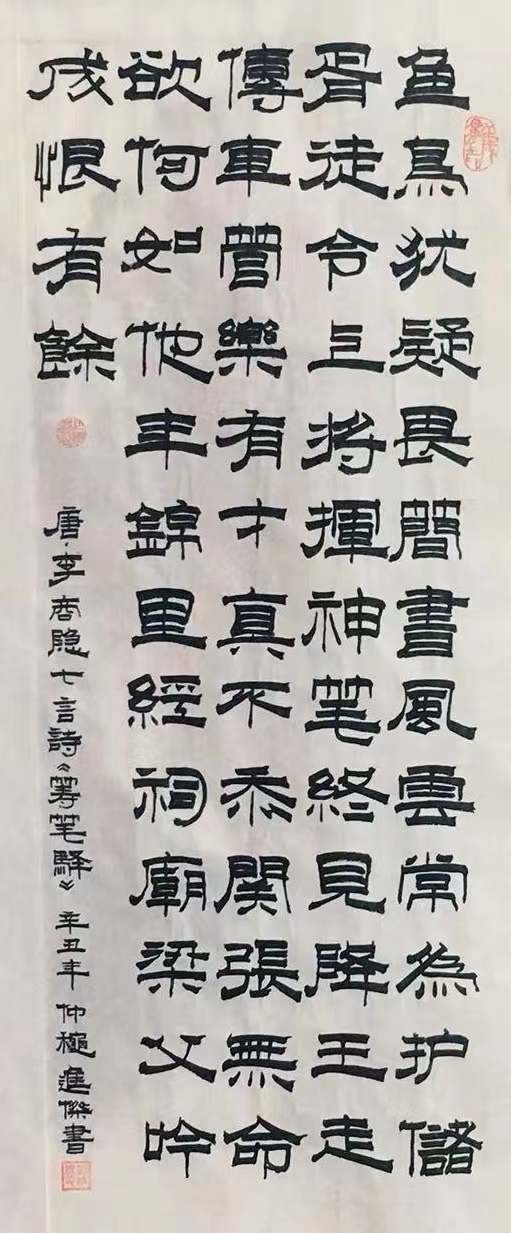 鱼鳥犹疑畏簡書風雲常為护儲
胥徒令上將揮神笔終見降王走
傳車管樂有才真不忝関張無命
欲何如他年錦里經祠廟梁父吟
成恨有餘
唐·李商隐七言詩《筹笔驿》辛丑年仲進傑書